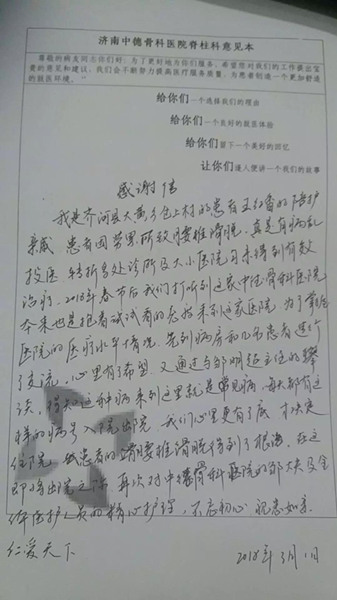 济南中德骨科医院脊柱科意见本
尊敬的病友同志你们好：为了更好地为你们服务，希望您对我们的工作提出宝
贵的意见和建议，我们会不断努力提高医疗服务质量，为患者创造一个更加舒适
的就医环境。
给你们一个选择我们的理由
给你们一个良好的就医体验
给你们留下一个美好的回忆
让你们逢人便讲一个我们的故事
感谢信
我是齐河县大黄乡仓上村的患者王红香的陪护
亲戚 患者因劳累所致腰椎滑脱，真是有病乱
投医 转折多处诊所及大小医院可未得到有效
治疗。2018年春节后我们打听到这家中德骨科医院
本来也是抱着试试看的态度来到这家医院，为了掌握
医院的医疗水平情况，先到病房和几名患者进行
了交流，心里有了希望，又通过与邹明超主任的攀
谈，得知这种病来到这里就是常见病，每天都有这
样的病号入院出院，我们心里更有了底，才决定
住院，我患者的腰椎滑脱得到了根治，在这
即将出院之际，再次对中德骨科医院的邹大夫及全
体医护人员的精心护理，不忘初心 祝您如亲
仁爱天下
2018年3月1日